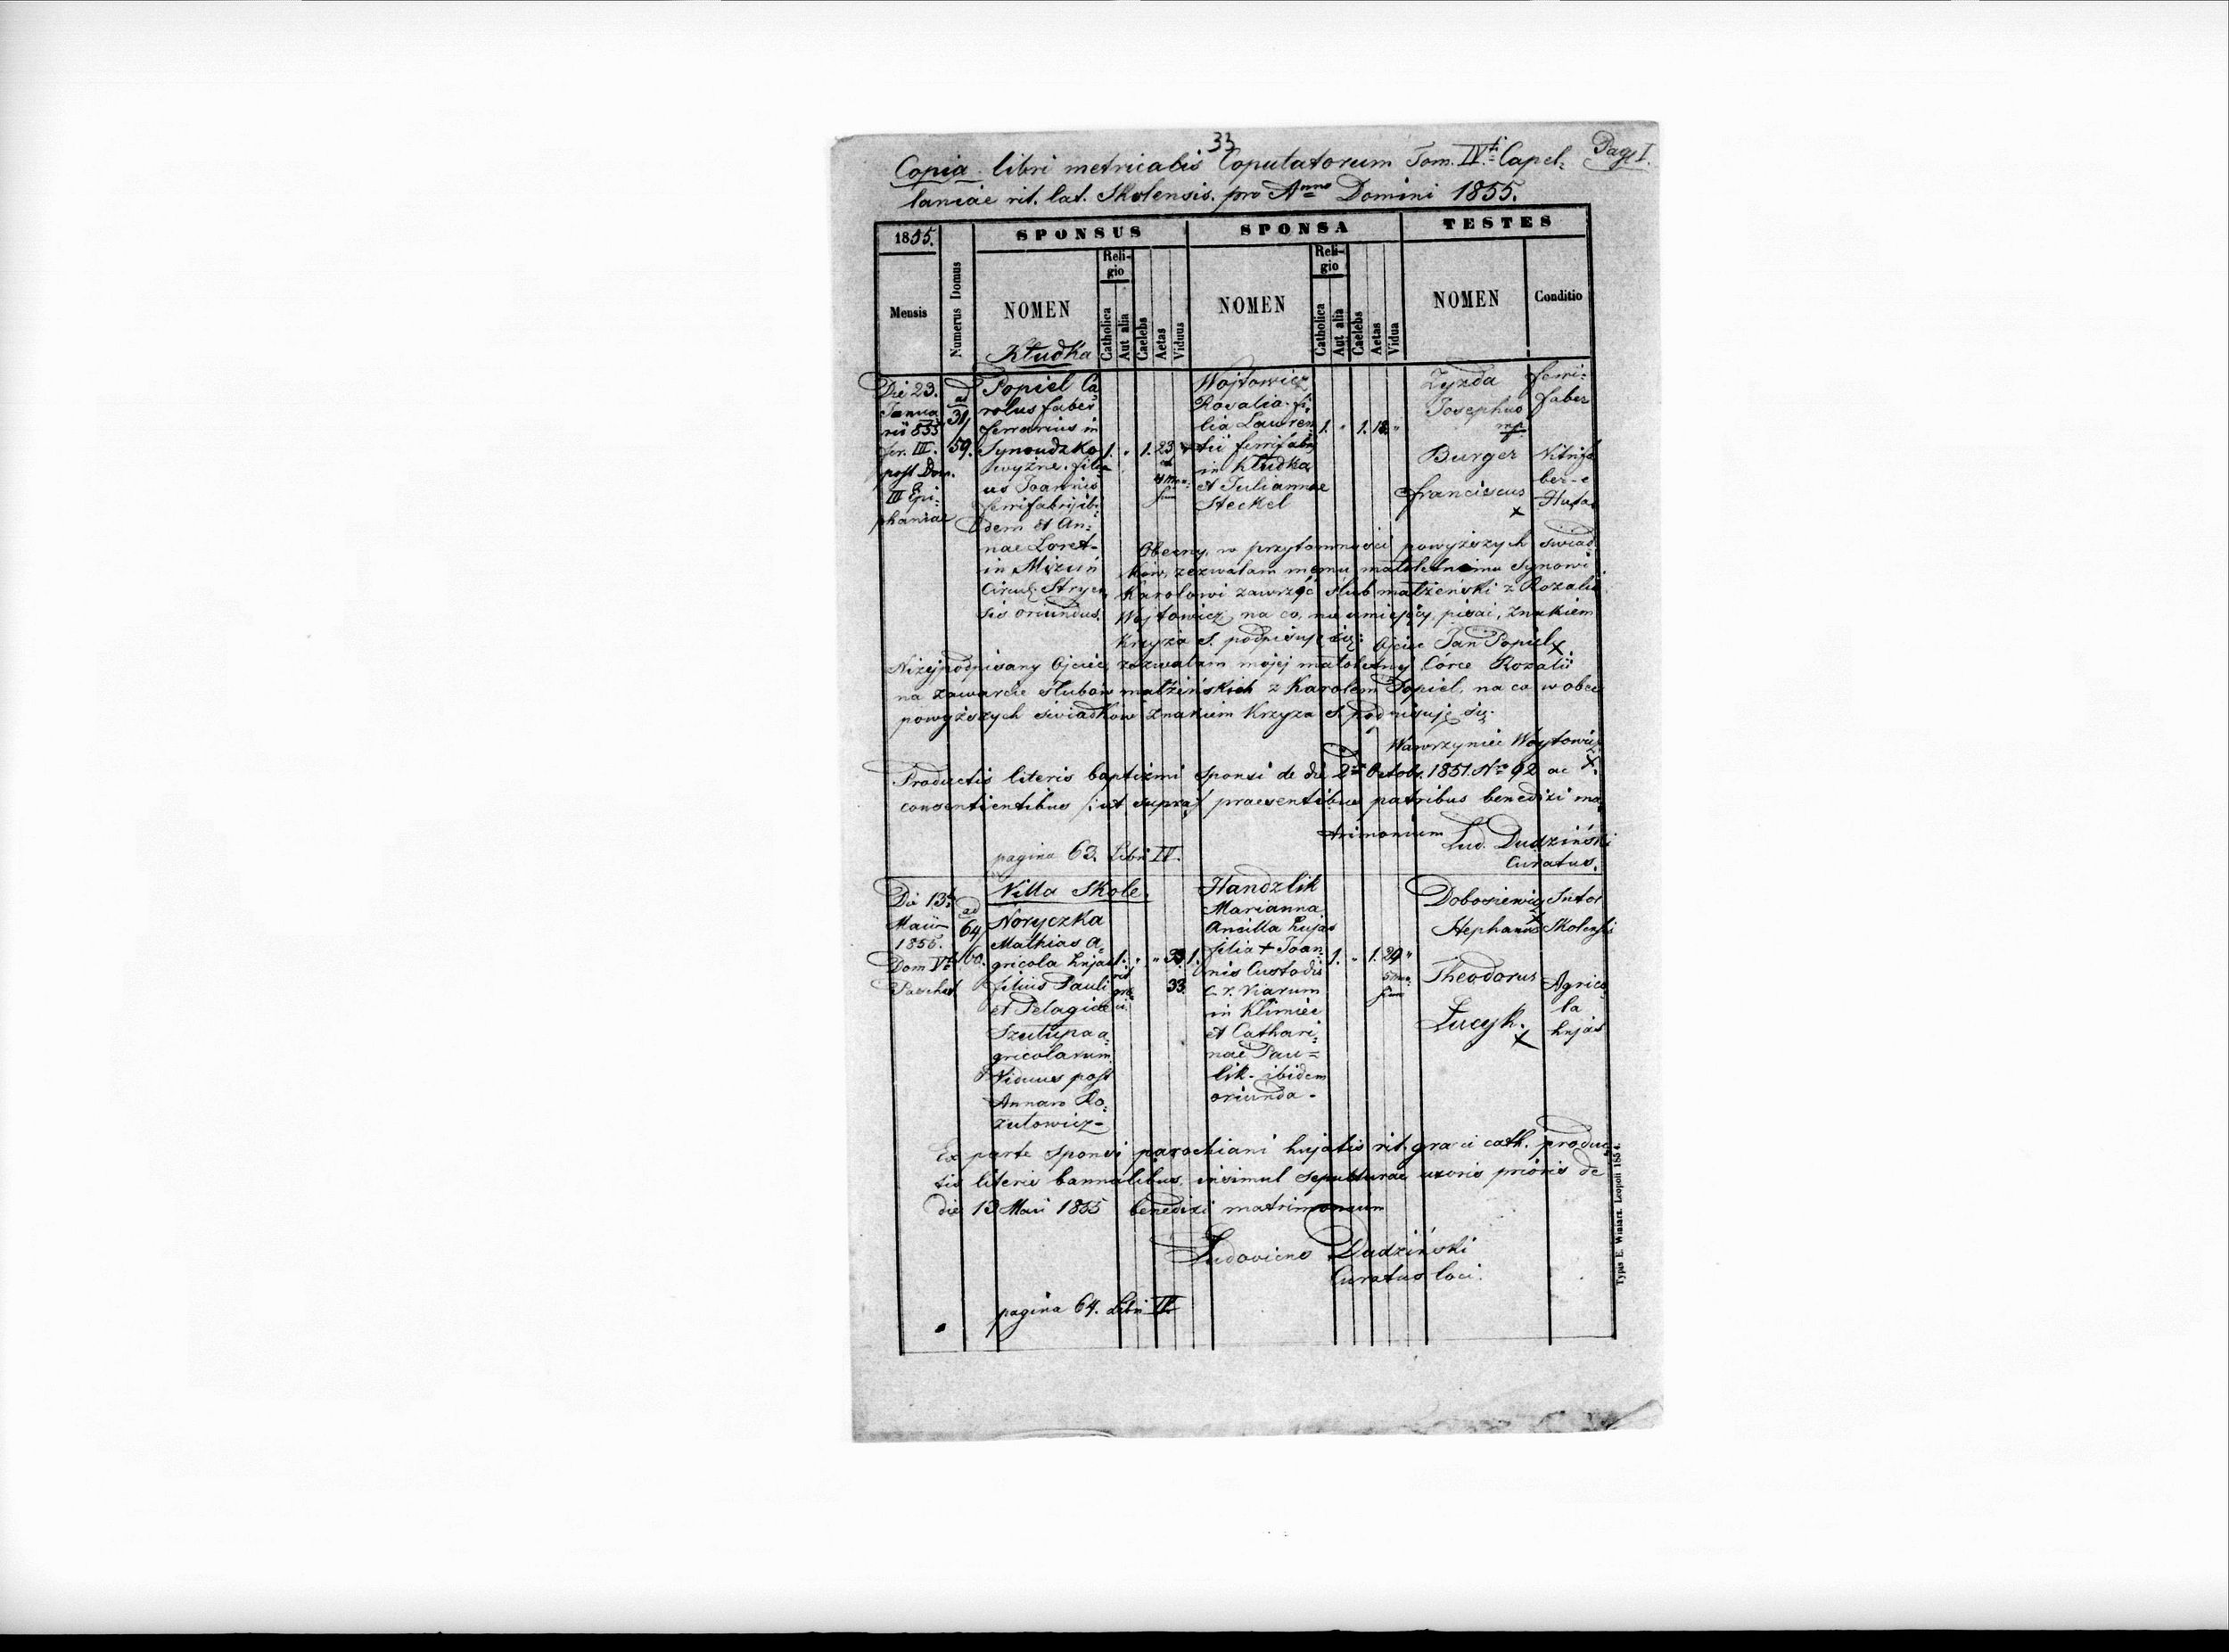 33
Copia libri metricalis Copulatorum Tom. IVti Capel= Pag I.
laniae rit. lat. Skolensis pro Anno Domini 1855.
1855. SPONSUS SPONSA TESTES
Mensis
Numerus Domus
NOMEN
Religio
Catholica
Aut alia
Caelebs
Aetas
Viduus
NOMEN
Religio
Catholica
Aut alia
Caelebs
Aetas
Vidua
NOMEN
Conditio
Kłudka
Die 23.
Janua
rii 855
fer. III.
post Dom.
III Epi-
phaniae
ad
31/
59.
Popiel Ca
rolus faber
ferrarius in
Synoudzko
wyżne. fili
us Joannis
ferrifabri ibi-
dem et An=
nae Loret-
in Mizuń
Circul. Stryen
sis oriundus.
1. " 1. 23
Wojtowicz
Rosalia fi-
lia Lauren
tii ferrifabri
in Kłudka
et Juliannae
Steckel
1. " 1. 18 "
Zyzda
Josephus
mp
ferri-
faber
Burger
Franciscus
x
Vitrifa
ber-e
Huta
Obecny, w przytomności powyższych świad
ków, zezwalam memu małoletniemu Synowi
Karolowi zawrzéć ślub małżeński z Rozalią
Wojtowicz, na co, nie umiejący pisać, znakiem
Krzyża S. podpisuję się: Ojciec Jan Popiel x.
Niżej podpisany Ojciec, zezwalam mojéj małoletniej Córce Rozalii
na zawarcie ślubów małżeńskich z Karolem Popiel, na co w obec
powyższych świadków znakiem Krzyża S. podpisuję się.
Wawrzyniec Wojtowicz
x.
Productis literis baptismi sponsi de die 2da Octobr. 1851. Nro 92 ac
consentientibus /:ut supra:/ praesentibus patribus benedixi ma=
trimonium
Lud. Dudziński
Curatus.
pagina 63. Libri IV.
Villa Skole.
Die 13ta
Maii
1855.
Dom Vta
Paschat
ad
64/
60.
Noryczka
Mathias a=
gricola hujas
filius Pauli
et Pelagiae
Szulupa a=
gricolarum.
Viduus post
Annam Ko=
zutowicz-
1. " " 33 1.
rit
grae
ci.
33.
Handzlik
Marianna
Ancilla hujas
filia + Joan-
nis Custodis
c. r. Viarum
in Klimiec
et Cathari=
nae Pau=
lik- ibidem
oriunda-
1. " 1. 29 "
Dobosiewicz
x
Stephanus
Sutor
Skolensis
Theodorus
Lucyk.
x
Agrico
la
hujas
Ex parte Sponsi parochiani hujatis rit. graeci cath. produc=
tis literis bannalibus, insimul sepulturae uxoris prioris de
die 13 Maii 1855 benedixi matrimonium
Ludovicus Dudziński
Curatus loci.
pagina 64. Libri IV
Typis E. Winiarz. Leopoli 1854.